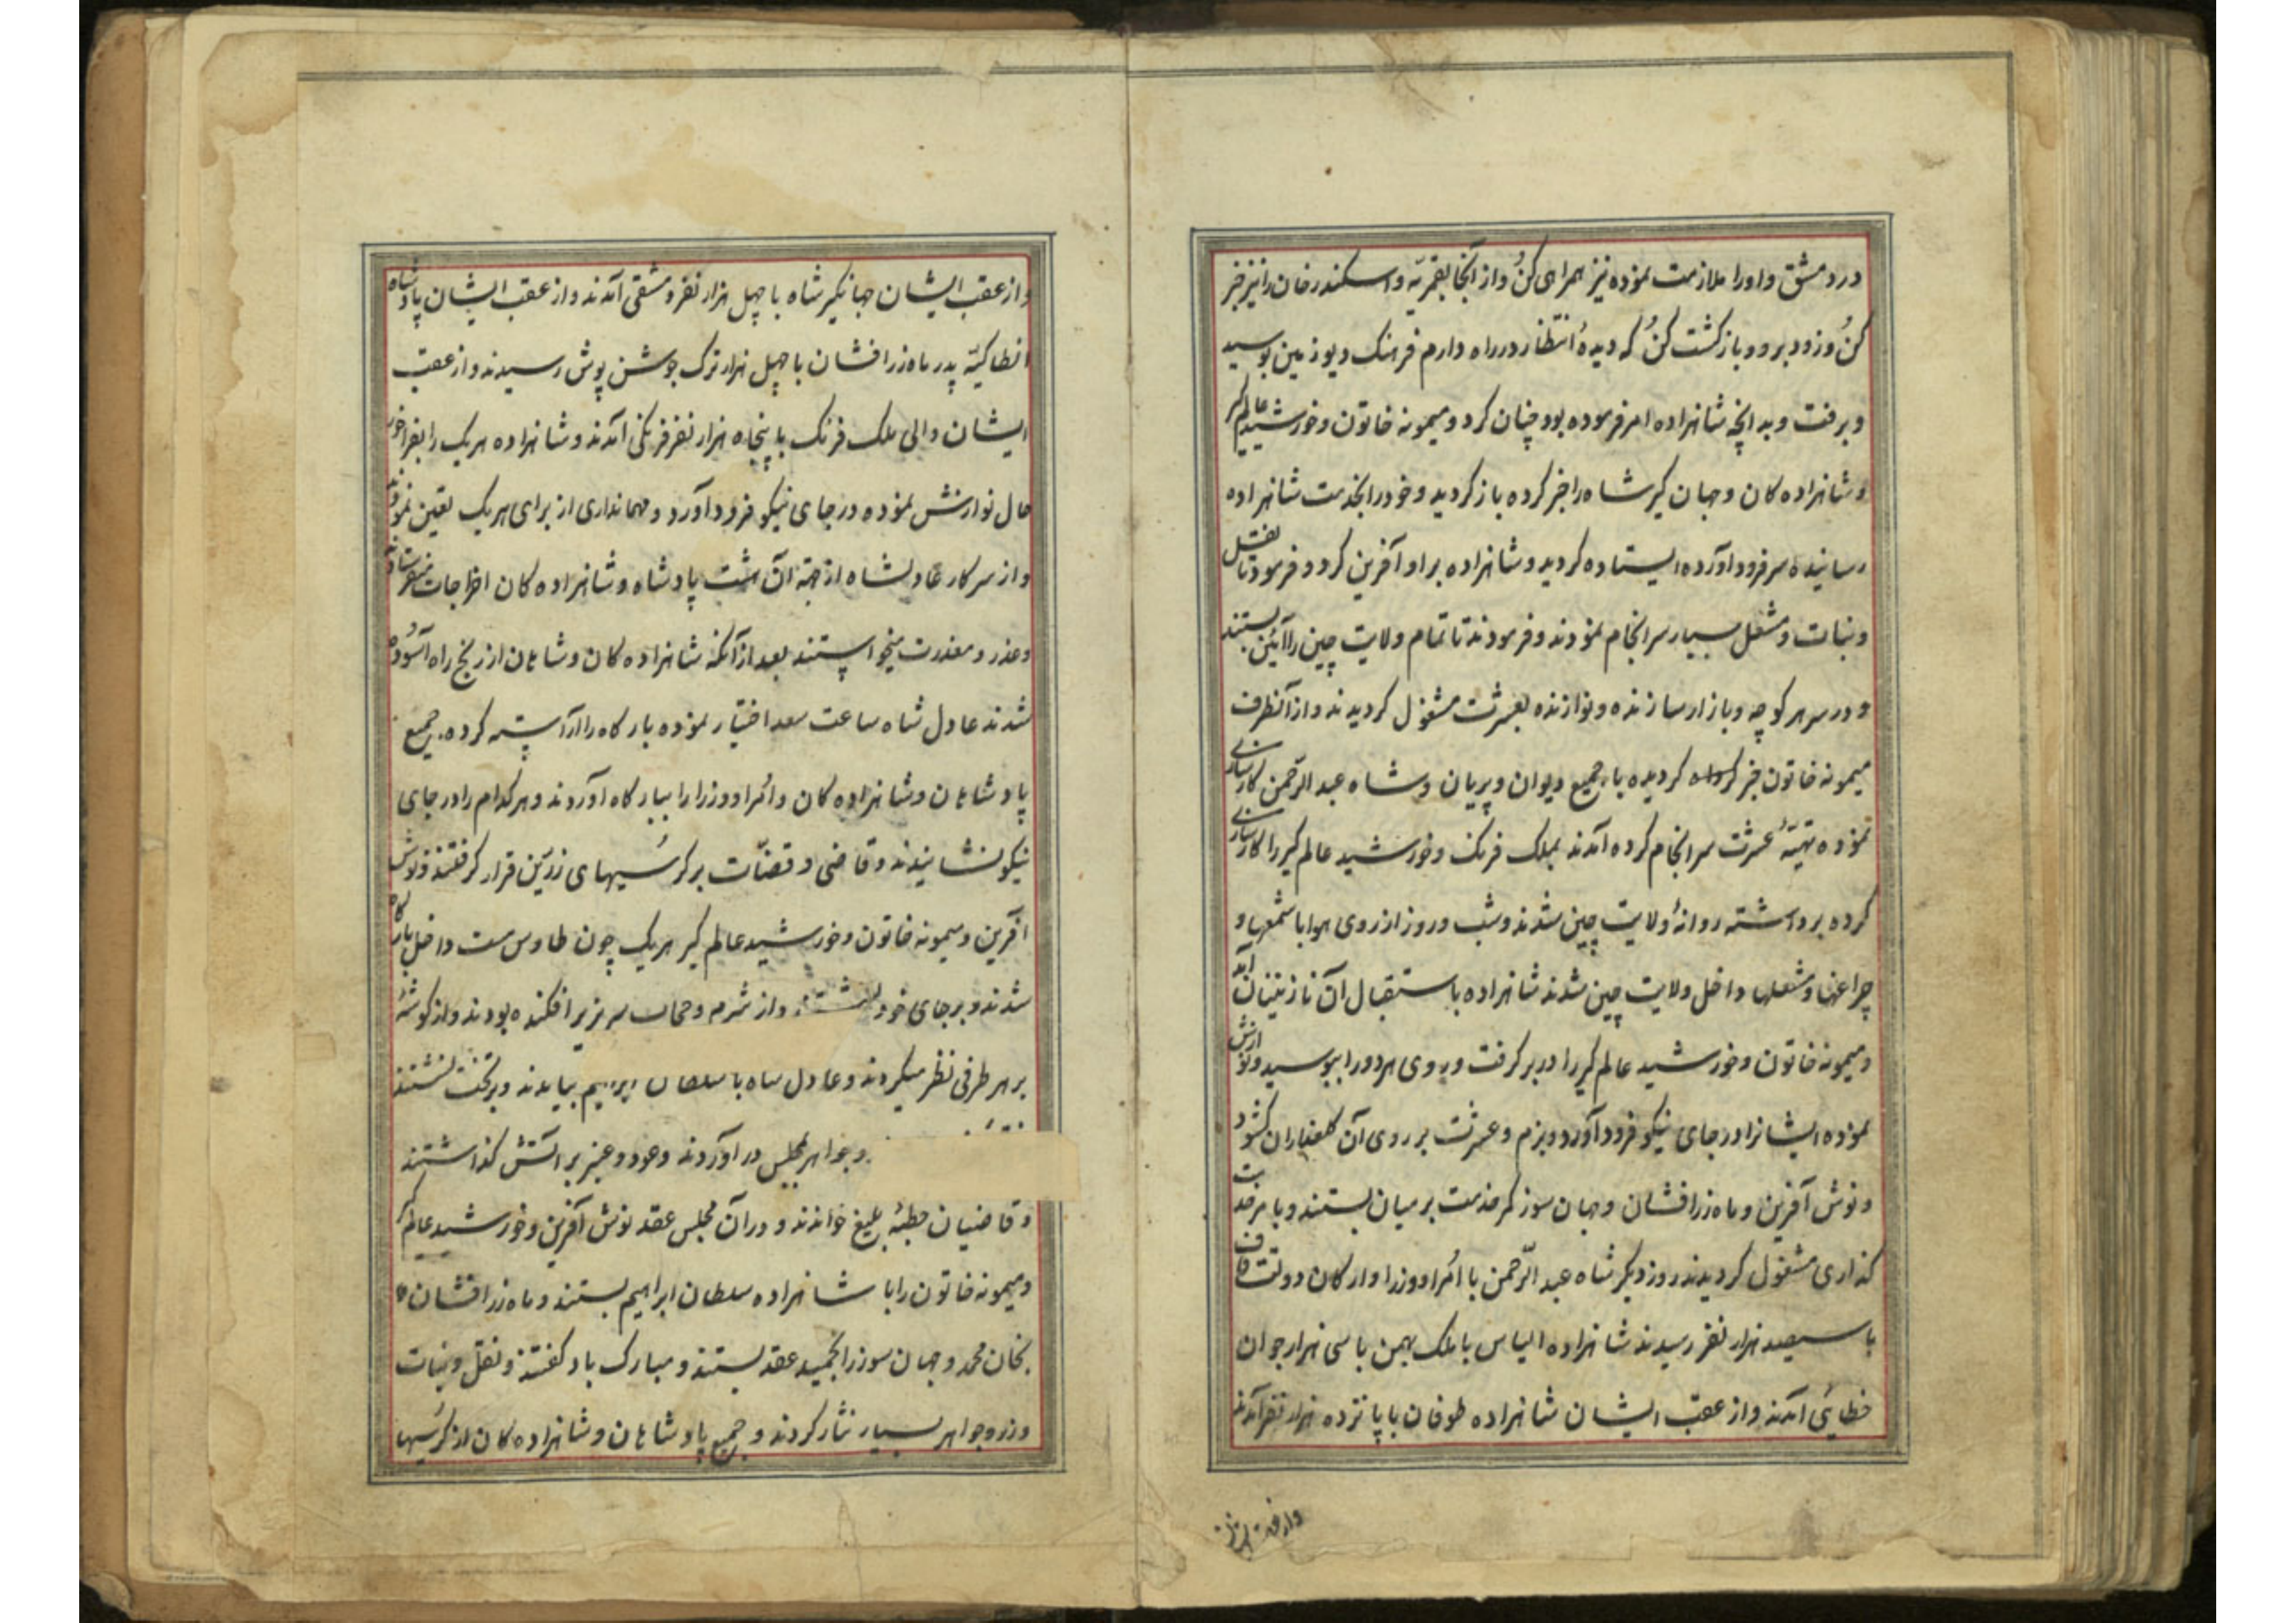 در دمشق و او را ملازمت نموده نیز همراهی کن و از آنجا بقمریه و اسکندر خان را نیز خبر
کن و زود برو و بازگشت کن که دیدهٔ انتظار در راه دارم فرهنک دیو زمین بوسید
و برفت و به انچه شاهزاده امر فرموده بود چنان کرد و میمونه خاتون و خورشید عالم کیر
و شاهزاده کان و جهان کیر شاه را خبر کرده باز کردید و خود را بخدمت شاهزاده
رسانیده سر فرود آورده ایستاده کردید و شاهزاده بر او آفرین کرد و فرمود تا نقل
و نبات و مشعل بسیار سرانجام نمودند و فرمودند تا تمام ولایت چین را آئین بستند
و در سر هر کوچه و بازار سازنده و نوازنده بعشرت مشغول کردیدند و از آنطرف
میمونه خاتون خبر کردیده با جمیع دیوان و پریان و شاه عبد الرّحمن کارسازی
نموده تهیّهٔ عشرت سرانجام کرده آمدند بملک فرنک و خورشید عالم کیر را کارسازی
کرده برداشته روانهٔ ولایت چین شدند و شب و روز از روی هوا با شمعها و
چراغها و مشعلها داخل ولایت چین شدند شاهزاده باستقبال آن نازنینان آمد
و میمونه خاتون و خورشید عالم کیر را در بر کرفت و روی هر دو را ببوسید و نوازش
نموده ایشانرا در جای نیکو فرود آورد و بزم و عشرت بر روی آن کلعذاران کشود
و نوش آفرین و ماه زرافشان و جهان سوز کمر خدمت بر میان بستند و با مر خدمت
کذاری مشغول کردیدند روز دیکر شاه عبد الرّحمن با اُمرا و وزرا و ارکان دولت قاف
با سیصد هزار نفر رسیدند شاهزاده الیاس با ملک بهمن با سی هزار جوان
خطایی آمدند و از عقب ایشان شاهزاده طوفان با پانزده هزار نفر آمدند
و از عقب ایشان
و از عقب ایشان جهانکیر شاه با چهل هزار نفر دمشقی آمدند و از عقب ایشان پادشاه
انطاکیّه پدر ماه زرافشان با چهل هزار ترک جوشن پوش رسیدند و از عقب
ایشان والی ملک فرنک با پنجاه هزار نفر فرنکی آمدند و شاهزاده هر یک را بفراخور
حال نوازش نموده در جای نیکو فرود آورد و مهمانداری از برای هر یک تعین نمود
و از سرکار عادلشاه از جهة آن هشت پادشاه و شاهزاده کان اخراجات میفرستادند
و عذر و معذرت میخواستند بعد از آنکه شاهزاده کان و شاهان از رنج راه آسُوده
شدند عادل شاه ساعت سعد اختیار نموده بارکاه را آراسته کرده جمیع
پادشاهان و شاهزاده کان و اُمرا و وزرا را ببارکاه آوردند و هر کدام را در جای
نیکو نشانیدند و قاضی و قضّات بر کرسیهای زرّین قرار کرفتند و نوش
آفرین و میمونه خاتون و خورشید عالم کیر هر یک چون طاوس مست داخل بارکاه
شدند و بر جای خود نشستند و از شرم و حجاب سر بزیر افکنده بودند و از کوشهٔ
بر هر طرفی نظر میکردند و عادل شاه با سلطان ابراهیم بیامدند و بر تخت نشستند
و جواهر مجلس در آوردند و عود و عنبر بر آتش کذاشتند
و قاضیان خطبهٔ بلیغ خواندند و در آن مجلس عقد نوش آفرین و خورشید عالم کیر
و میمونه خاتون را با شاهزاده سلطان ابراهیم بستند و ماه زرافشان
بخان محمد و جهان سوز را بحمید عقد بستند و مبارک باد کفتند و نقل و نبات
و زر و جواهر بسیار نثار کردند و جمیع پادشاهان و شاهزاده کان از کرسیها